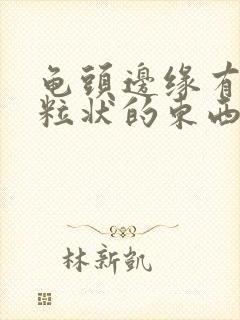 龟頭邊缘有
粒状的東西
林新凯